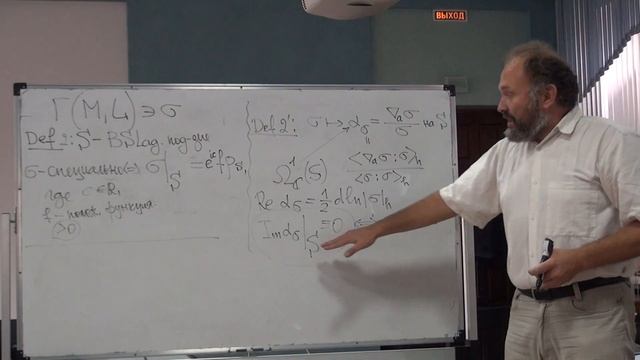 ВЫХОД
Γ(M, L) ∋ σ
Def 1: S - BSLag. под-ие
σ-специально(е) σ|_S = e^{ic} f p_S,
где c ∈ ℝ,
f - полож. функция.
(>0)
Def 2': σ ↦ α_σ = ∇_a σ / σ на S
Ω^1_ℂ(S) <∇_a σ; σ>_h / <σ; σ>_h
Re α_σ = 1/2 d ln|σ|_h
Im α_σ|_S = 0